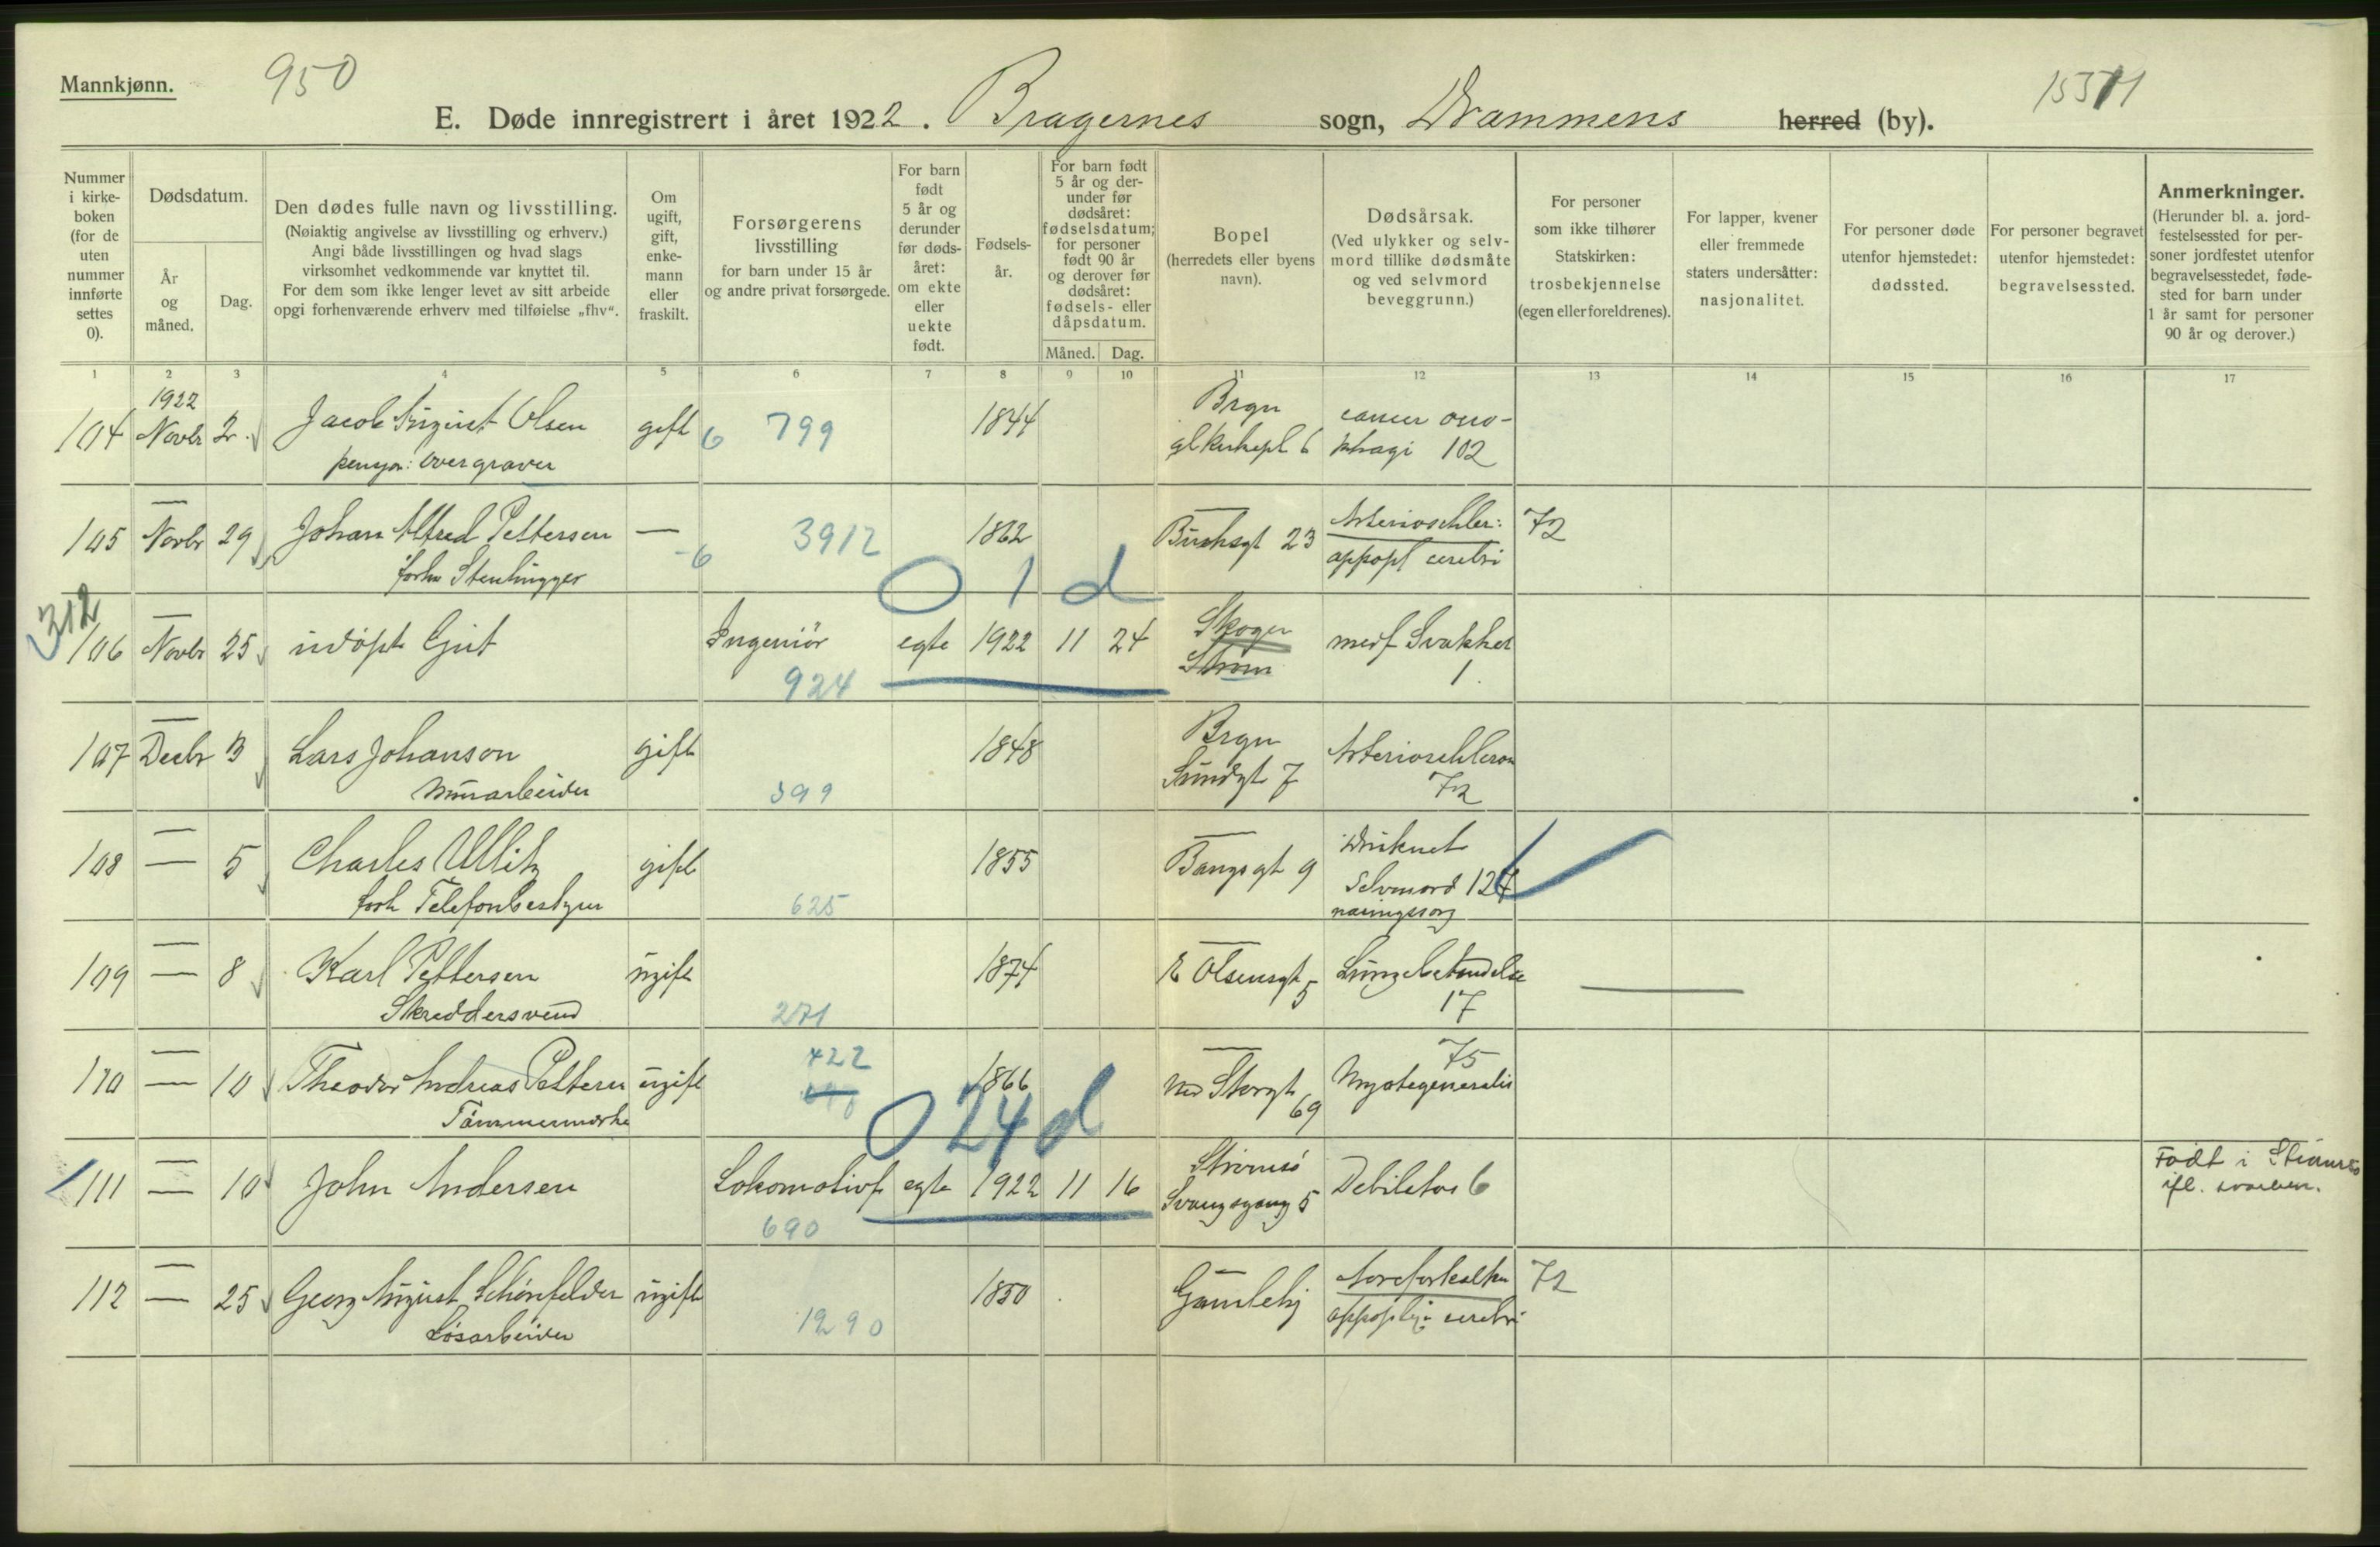 Mannkjønn.
950
E. Døde innregistrert i året 1922. Bragernes sogn, Drammens herred (by).
Nummer i kirke-boken (for de uten nummer innførte settes 0).
Dødsdatum.
År og måned.
Dag.
Den dødes fulle navn og livsstilling.
(Nøiaktig angivelse av livsstilling og erhverv.)
Angi både livsstillingen og hvad slags
virksomhet vedkommende var knyttet til.
For dem som ikke lenger levet av sitt arbeide
opgi forhenværende erhverv med tilføielse „fhv“.
Om ugift, gift, enke-mann eller fraskilt.
Forsørgerens livsstilling
for barn under 15 år
og andre privat forsørgede.
For barn født 5 år og derunder før døds-året: om ekte eller uekte født.
Fødsels-år.
For barn født 5 år og der-under før dødsåret: fødselsdatum; for personer født 90 år og derover før dødsåret: fødsels- eller dåpsdatum.
Måned. Dag.
Bopel
(herredets eller byens navn).
Dødsårsak.
(Ved ulykker og selv-mord tillike dødsmåte og ved selvmord beveggrunn.)
For personer som ikke tilhører Statskirken: trosbekjennelse (egen eller foreldrenes).
For lapper, kvener eller fremmede staters undersåtter: nasjonalitet.
For personer døde utenfor hjemstedet: dødssted.
For personer begravet utenfor hjemstedet: begravelsessted.
Anmerkninger.
(Herunder bl. a. jord-festelsessted for per-soner jordfestet utenfor begravelsesstedet, føde-sted for barn under 1 år samt for personer 90 år og derover.)
1 2 3 4 5 6 7 8 9 10 11 12 13 14 15 16 17
1922
104 Novbr 2. Jacob August Olsen gift 6 799 1844 Brgn glkirkepl 6 cancer oeso-phagi 102
pensjon: overgraver
105 — Novbr 29 Johan Alfred Pettersen — -6 3912 1862 — Buchsgt 23 Arterioschler: 72
forhv Stenhugger appopl cerebri
0 1 d
312
106 — Novbr 25 udøpt Gut Ingeniør egte 1922 11 24 Skoger Strøm medf Svakhet
924 1.
107 — Decbr 3 Lars Johanson gift 1848 Brgn Sundgt 7 Arterioschleros
Murarbeider 399 72
108 — — 5 Charles Ullitz gift 1855 — Bangsgt 9 Druknet
forh Telefonbestyrer 625 selvmord 124
næringssorg
109 — — 8 Karl Pettersen ugift 1874 — E Olsensgt 5 Lungebetændelse
Skreddersvend 271 17
110 — — 10 Theodor Andreas Pettersen ugift 422 1866 — Ned Storgt 69 75
0 24 d
111 — — 10 John Andersen Lokomotivf egte 1922 11 16 Strømsø Svangsgang 5 Debilitas 6 Født i Strømsø
690 ifl.
112 — — 25 Georg August Schønfelder ugift 1850 — Gamlehj Aareforkalkn 72
Løsarbeider 1290 appoplexi cerebri